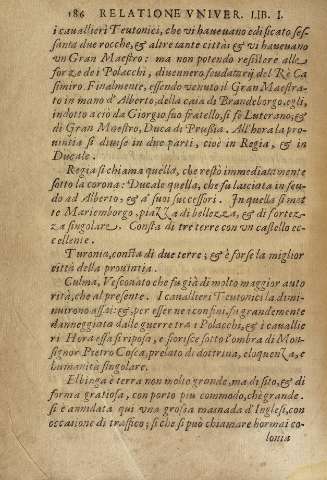 186 RELATIONE VNIVER. LIB. I.
i cauallieri Teutonici, che vi haueuano edificato sessanta
due rocche, & altre tante città: & vi haueuano
vn Gran Maestro: ma non potendo resistere alle
forze dei Polacchi, diuennero feudatarij del Rè Casimiro.
Finalmente, essendo venuto il Gran Maestrato
in mano d'Alberto, della casa di Brandeborgo, egli,
indotto a ciò da Giorgio suo fratello, si fè Luterano, &
di Gran Maestro, Duca di Prussia. All'hora la prouintia
si diuise in due parti, cioè in Regia, & in
Ducale.
Regia si chiama quella, che restò immediatamente
sotto la corona: Ducale quella, che fu lasciata in feudo
ad Alberto, & a' suoi successori. In quella si mette
Mariemborgo, piazza di bellezza, & di fortezza
singolare. Consta di tre terre con vn castello eccellente.
Turonia, consta di due terre; & è forse la miglior
città della prouintia.
Culma, Vesconato che fu già di molto maggior autorità,
che al presente. I cauallieri Teutonici la diminuirono
assai: & per esser ne i confini, fu grandemente
danneggiata dalle guerre tra i Polacchi, & i cauallieri
Hora essa si riposa, e fiorisce sotto l'ombra di Monsignor
Pietro Costa, prelato di dottrina, eloquenza, e
humanità singolare.
Elbinga è terra non molto grande, ma di sito, & di
forma gratiosa, con porto piu commodo, che grande.
si è annidata qui vna grossa masnada d'Inglesi, con
occasione di traffico; si che si può chiamare hormai colonia